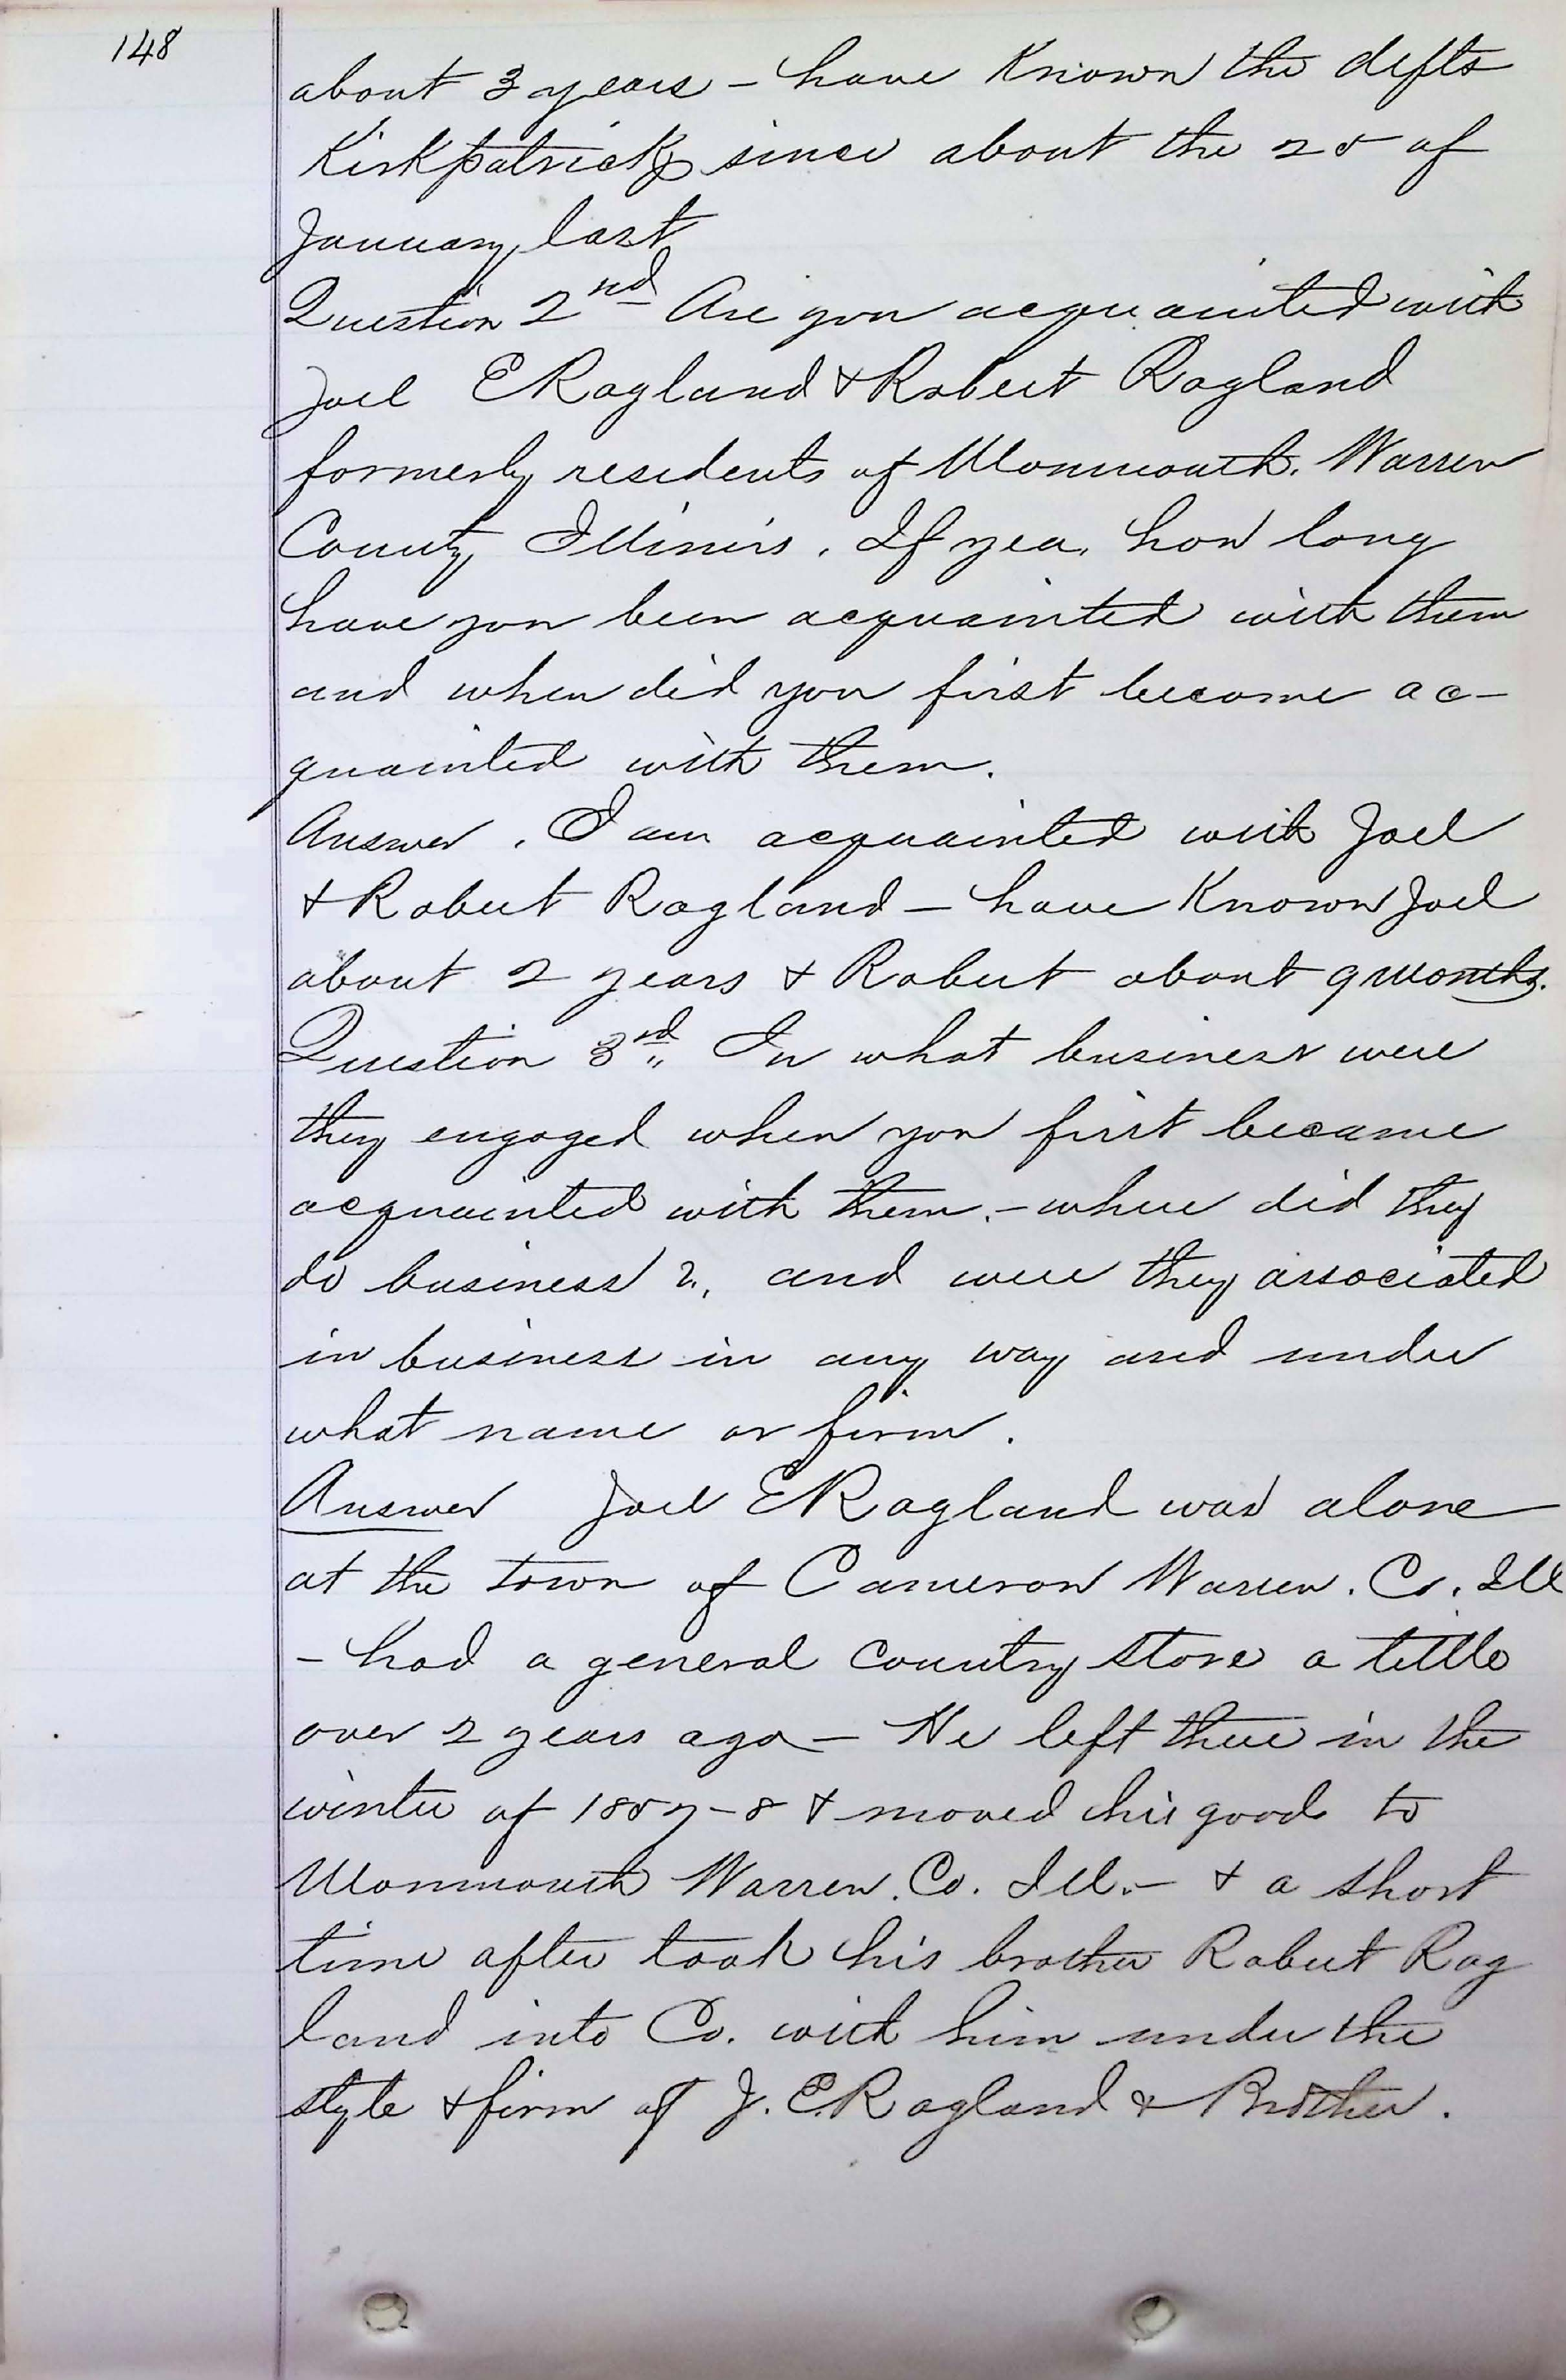 148
about 3 years - have Known the defts
Kirkpatricks since about the 25 of
January last
Question 2nd Are you acquainted with
Joel E Ragland & Robert Ragland
formerly residents of Monmouth. Warren
County Illinois. If yea, how long
have you been acquainted with them
and when did you first become ac-
quainted with them.
Answer. I am acquainted with Joel
& Robert Ragland - have Known Joel
about 2 years & Robert about 9 months.
Question 3rd In what business were
they engaged when you first became
acquainted with them. - where did they
do business?, and were they associated
in business in any way and under
what name or firm.
Answer Joel E Ragland was alone
at the town of Cameron Warren. Co. Ill
- had a general Country store a little
over 2 years ago - He left there in the
winter of 1857-8 & moved his goods to
Monmouth Warren. Co. Ill. - & a short
time after took his brother Robert Rag
land into Co. with him under the
style & firm of J. E. Ragland & Brother.